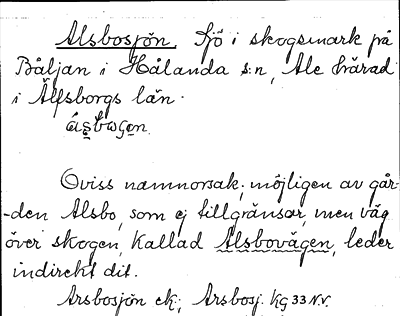 Alsbosjön. Sjö i skogsmark på
Båljan i Hålanda s:n, Ale härad
i Älfsborgs län.
Oviss namnorsak; möjligen av går-
-den Alsbo, som ej tillgränsar, men väg
över skogen, kallad Alsbovägen, leder
indirekt dit.
Arsbosjön ek; Arsbosj. KG 33 NV.